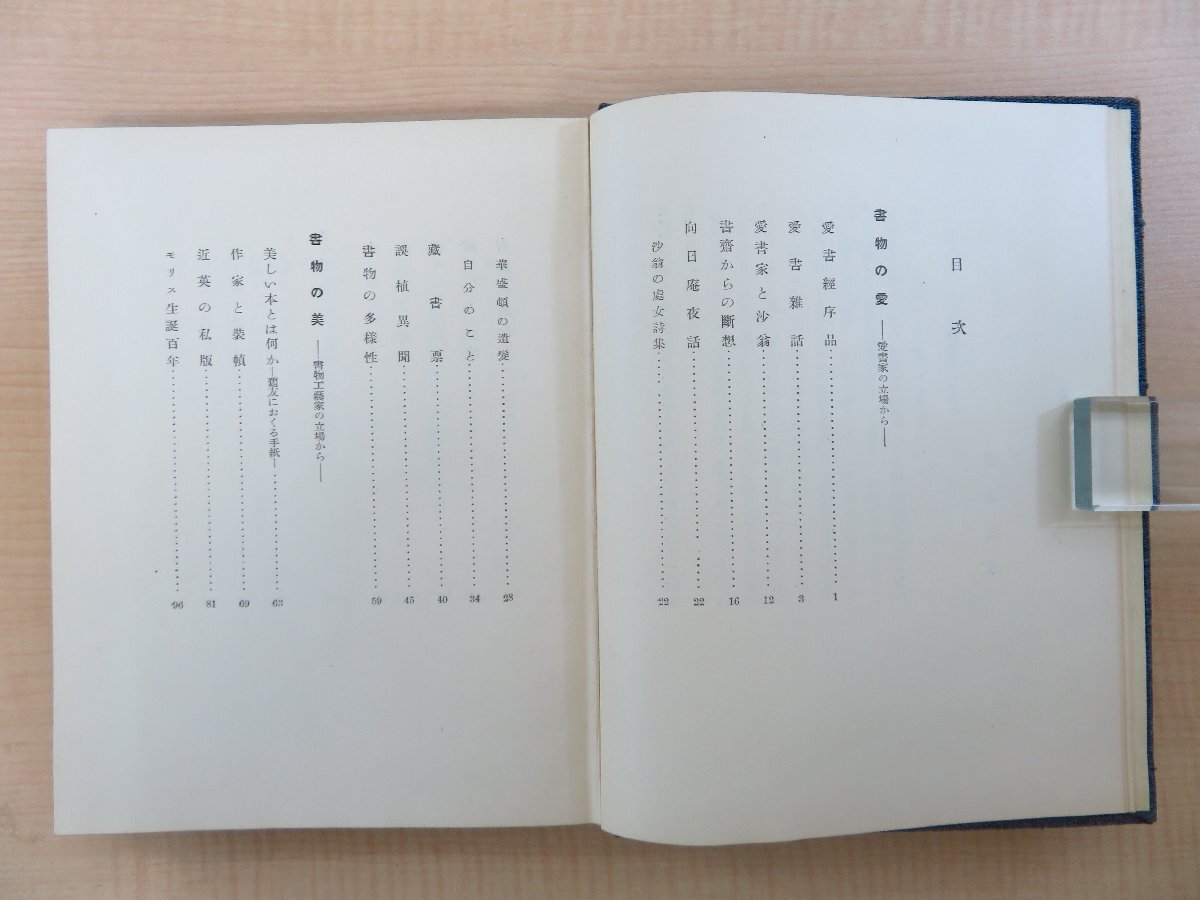 目次
書物の愛 ——愛書家の立場から——
愛書經序品……1
愛書雜話……3
愛書家と沙翁……12
書齋からの斷想……16
向日庵夜話……22
沙翁の處女詩集……22
華盛頓の遺髮……28
自分のこと……34
藏書票……40
誤植異聞……45
書物の多樣性……59
書物の美 ——書物工藝家の立場から——
美しい本とは何か—舊友におくる手紙—……63
作家と裝幀……69
近英の私版……81
モリス生誕百年……96